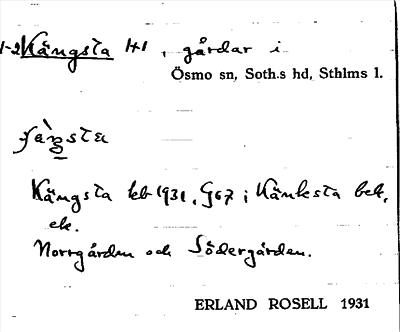 1-2 Kängsta 1+1, gårdar i
Ösmo sn, Soth.s hd, Sthlms l.
Kängsta kb 1931, G67; Känksta
ek.
Norrgården och Södergården.
ERLAND ROSELL 1931